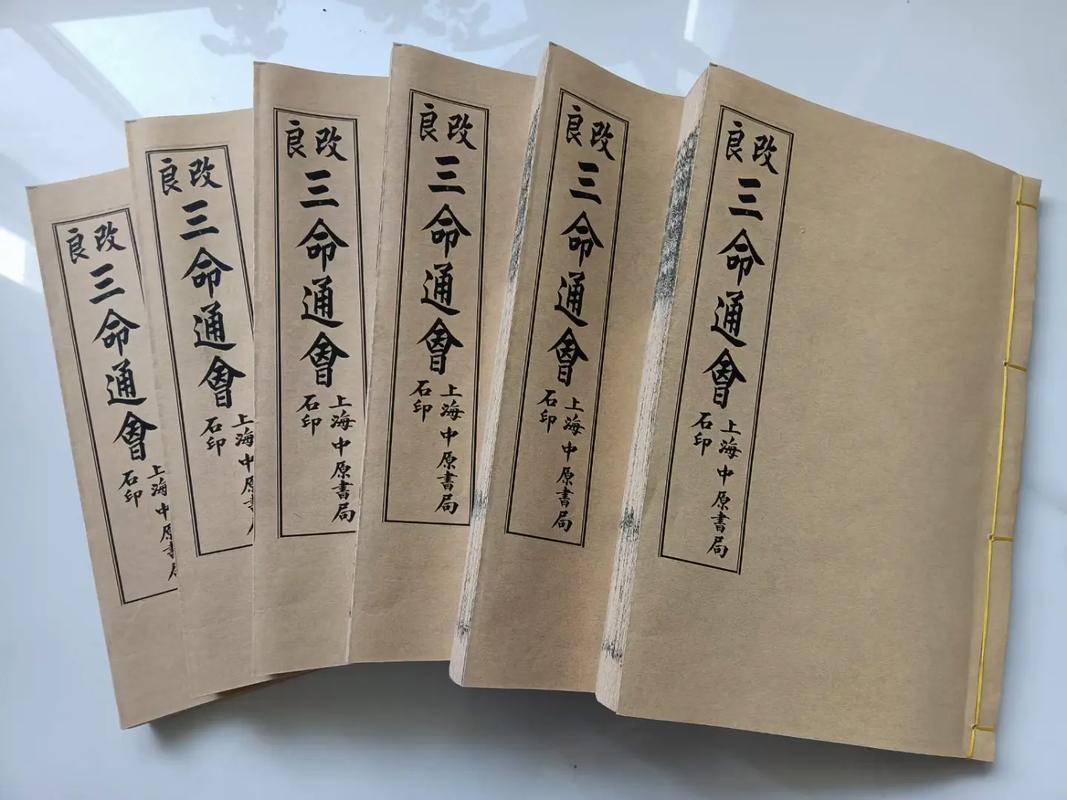 改良
三命通會
上海中原書
石印
改良
三命通會
上海中原
石印
改良
三命通會
上海中原書局
石印
改良
三命通會
上海中原書局
石印
改良
三命通會
上海中原書局
石印
改良
三命通會
上海中原書局
石印